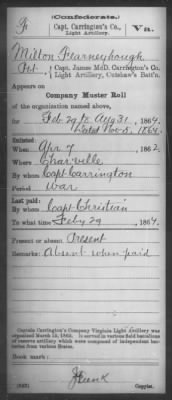 (Confederate.)
F Capt. Carrington's Co., Va.
Light Artillery.
Milton Fearneyhough
Pvt, Capt. James McD. Carrington's Co.
Light Artillery, Cutshaw's Batt'n.
Appears on
Company Muster Roll
of the organization named above,
for Feb 29 to Aug 31, 1864.
dated Nov 5, 1864.
Enlisted:
When Apr 7, 1862.
Where Char'ville
By whom Capt Carrington
Period War
Last paid:
By whom Capt Christian
To what time Feby 29, 1864.
Present or absent Present
Remarks: Absent when paid
Captain Carrington's Company Virginia Light Artillery was
organized March 1862. It served in various field battalions
of reserve artillery which were composed of independent batteries
from various States.
Book mark:
(642)
Copyist.